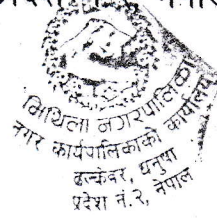 मिथिला नगरपालिका
नगर कार्यपालिकाको कार्यालय
ढल्केवर, धनुषा
प्रदेश नं.२, नेपाल